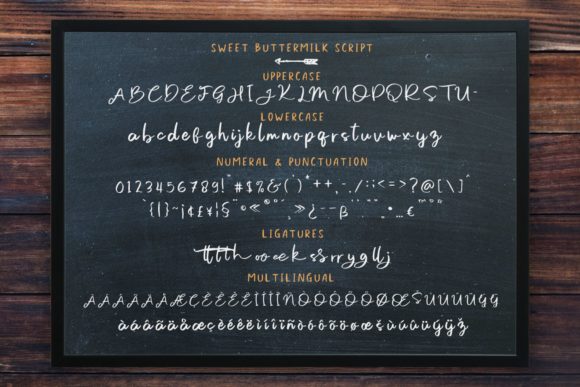 SWEET BUTTERMILK SCRIPT
UPPERCASE
ABCDEFGHIJKLMNOPQRSTU-
LOWERCASE
abcdefghijklmnopqrstuvwxyz
NUMERAL & PUNCTUATION
0123456789!"#$%&()*++,-./:;<=>?@[\]^
LIGATURES
MULTILINGUAL
ÀÁÂÃÄÅÆÇÈÉÊËÌÍÎÏÑÒÓÔÕÖØŒŠÙÚÛÜ
àáâãäåæçèéêëìíîïñòóôõöøœšùúûüýÿž